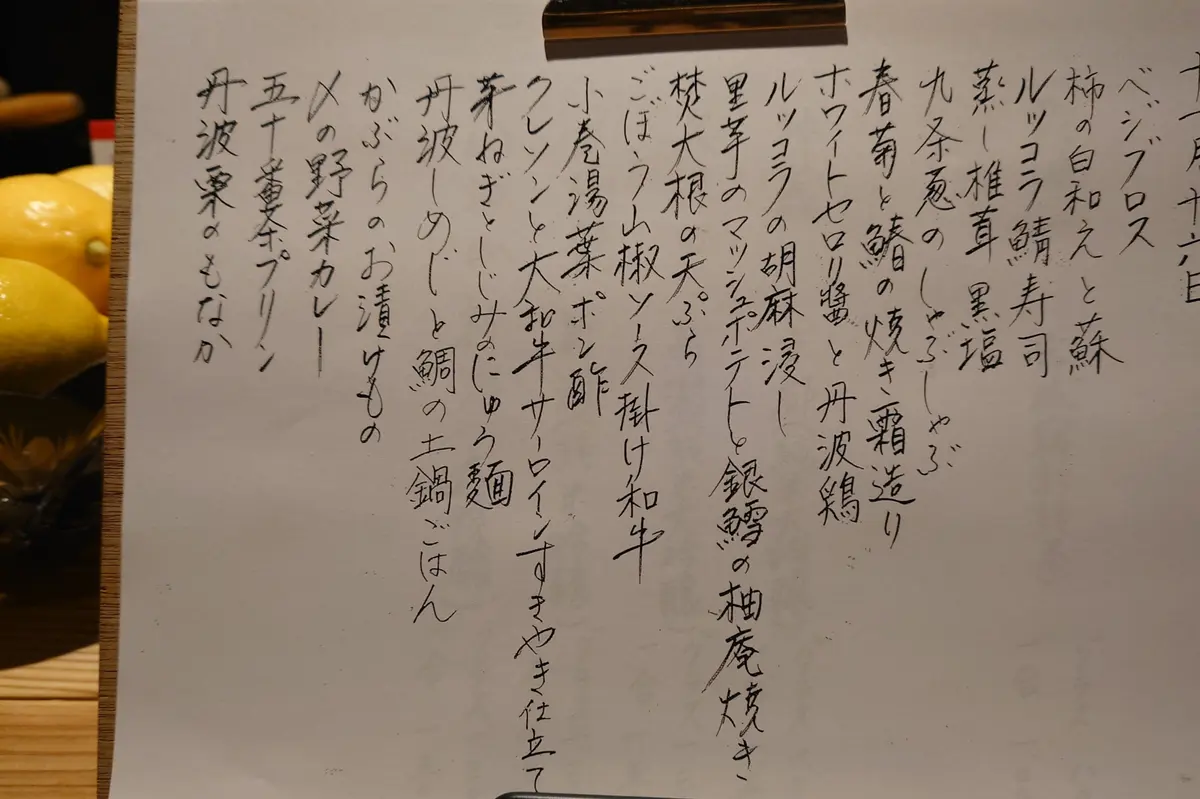 十一月十六日
ベジブロス
柿の白和えと蘇
ルッコラ鯖寿司
蒸し椎茸 黒塩
九条葱のしゃぶしゃぶ
春菊と鰆の焼き霜造り
ホワイトセロリ醬と丹波鶏
ルッコラの胡麻浸し
里芋のマッシュポテトと銀鱈の柚庵焼き
焚大根の天ぷら
ごぼう山椒ソース掛け和牛
小巻湯葉ポン酢
クレソンと大和牛サーロインすきやき仕立て
芽ねぎとしじみのにゅう麺
丹波しめじと鯛の土鍋ごはん
かぶらのお漬けもの
〆の野菜カレー
五十番茶プリン
丹波栗のもなか